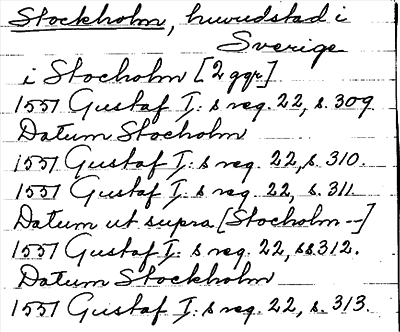 Stockholm, huvudstad i
Sverige
i Stocholm [2 ggr]
1551 Gustaf I: s reg. 22, s. 309
Datum Stocholm
1551 Gustaf I: s reg. 22, s. 310.
1551 Gustaf I: s reg. 22, s. 311.
Datum ut supra [Stocholm --]
1551 Gustaf I: s reg. 22, ss 312.
Datum Stockholm
1551 Gustaf I: s reg. 22, s. 313.